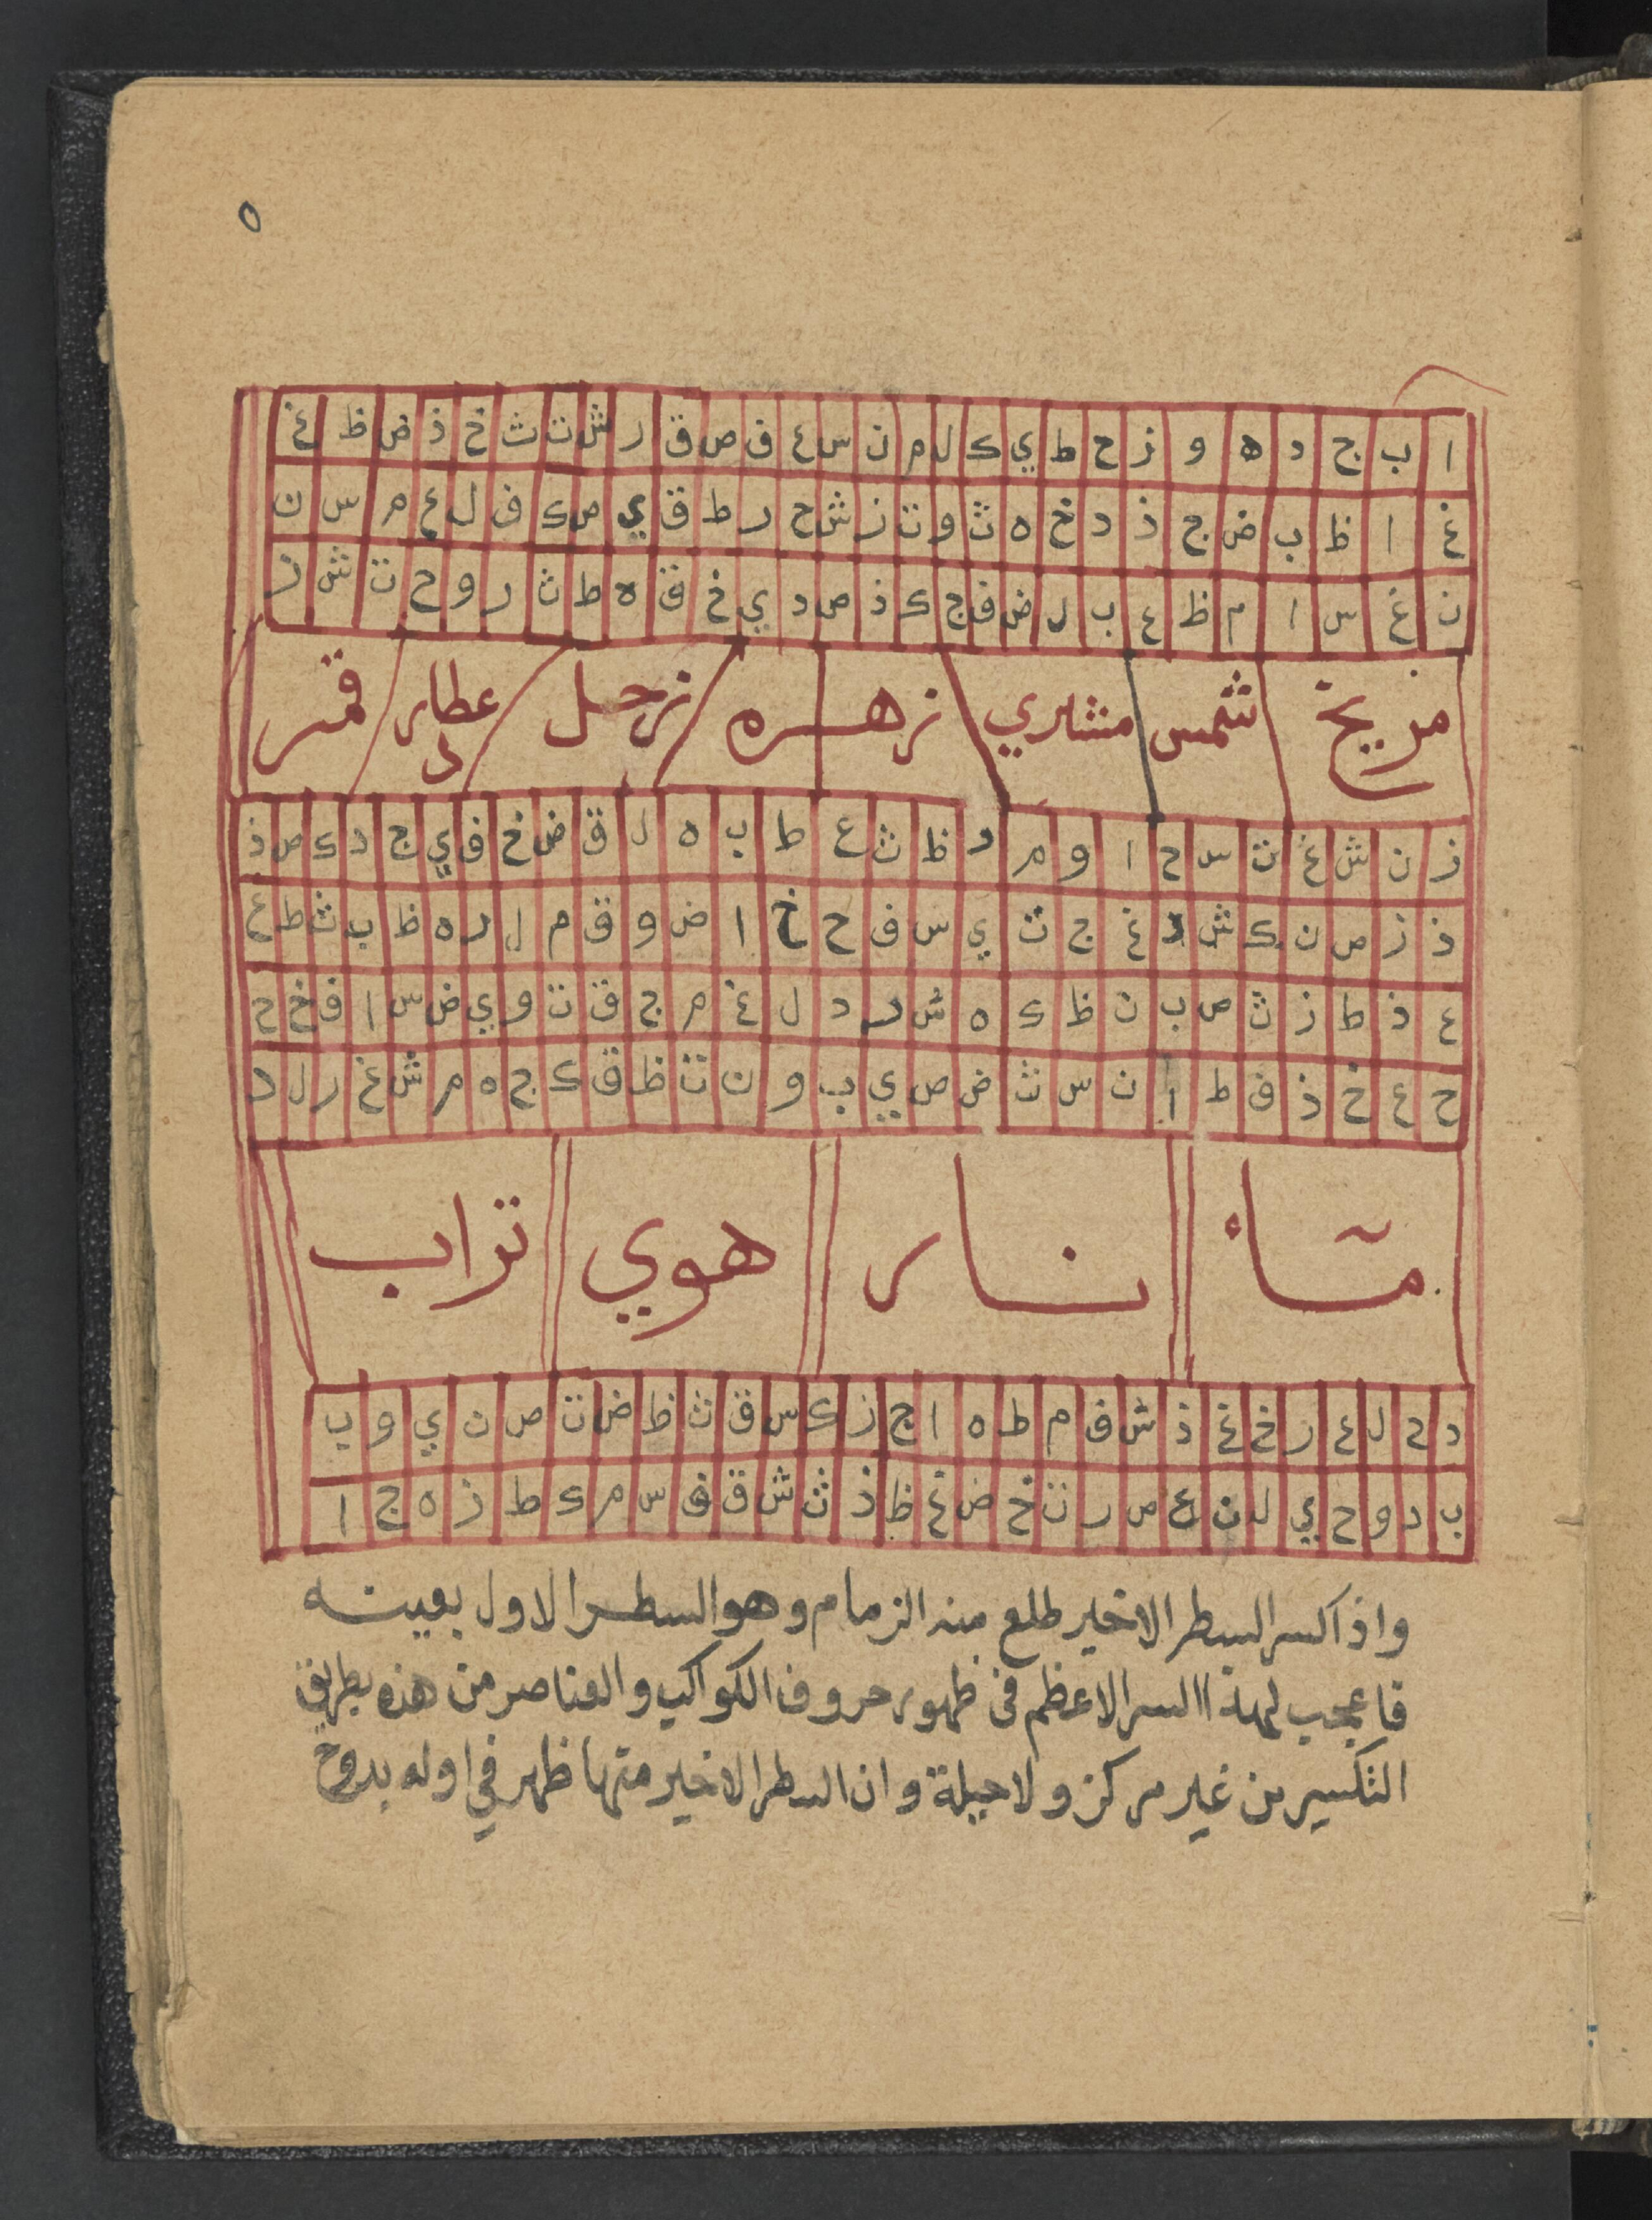 ٥
ا ب ج د ه و ز ح ط ي ك ل م ن س ع ف ص ق ر ش ت ث خ ذ ض ظ غ
غ ا ظ ب ض ج ذ د خ ه ث و ت ز ش ح ر ط ق ي ص ك ف ل ع م س ن
ن غ س ا م ظ ع ب ل ض ف ج ك ذ ص د ي خ ق ه ط ث ر و ح ت ش ز
مريخ شمس مشتري زهره زحل عطارد قمر
ز ن ش غ ت س ح ا و م ر ظ ث ع ط ب ه ل ق ض خ ف ي ج د ك ص ذ
ذ ز ص ن ك ش د غ ج ت ي س ف ح خ ا ض و ق م ل ر ه ظ ب ث ط ع
ع ذ ط ز ث ص ب ن ظ ك ه ش ر د ل غ م ج ق ت و ي ض س ا ف خ ح
ح ع خ ذ ف ط ا ن س ث ض ص ي ب و ن ت ظ ق ك ج ه م ش غ ر ل د
مآء نار هوي تراب
د ح ل ع ر خ غ ذ ش ف م ط ه ا ج ز ك س ق ث ظ ض ت ص ن ي و ب
ب د و ح ي ل ن ع ص ر ت خ ض غ ظ ذ ث ش ق ف س م ك ط ز ه ج ا
واذا كسر السطر الاخير طلع منه الزمام وهو السطر الاول بعينه
فاعجب لهذا السر الاعظم فى ظهور حروف الكواكب والعناصر من هذه بطريق
التكسير من غير مركز ولا حيلة وان السطر الاخير منها ظهر في اوله بدوح